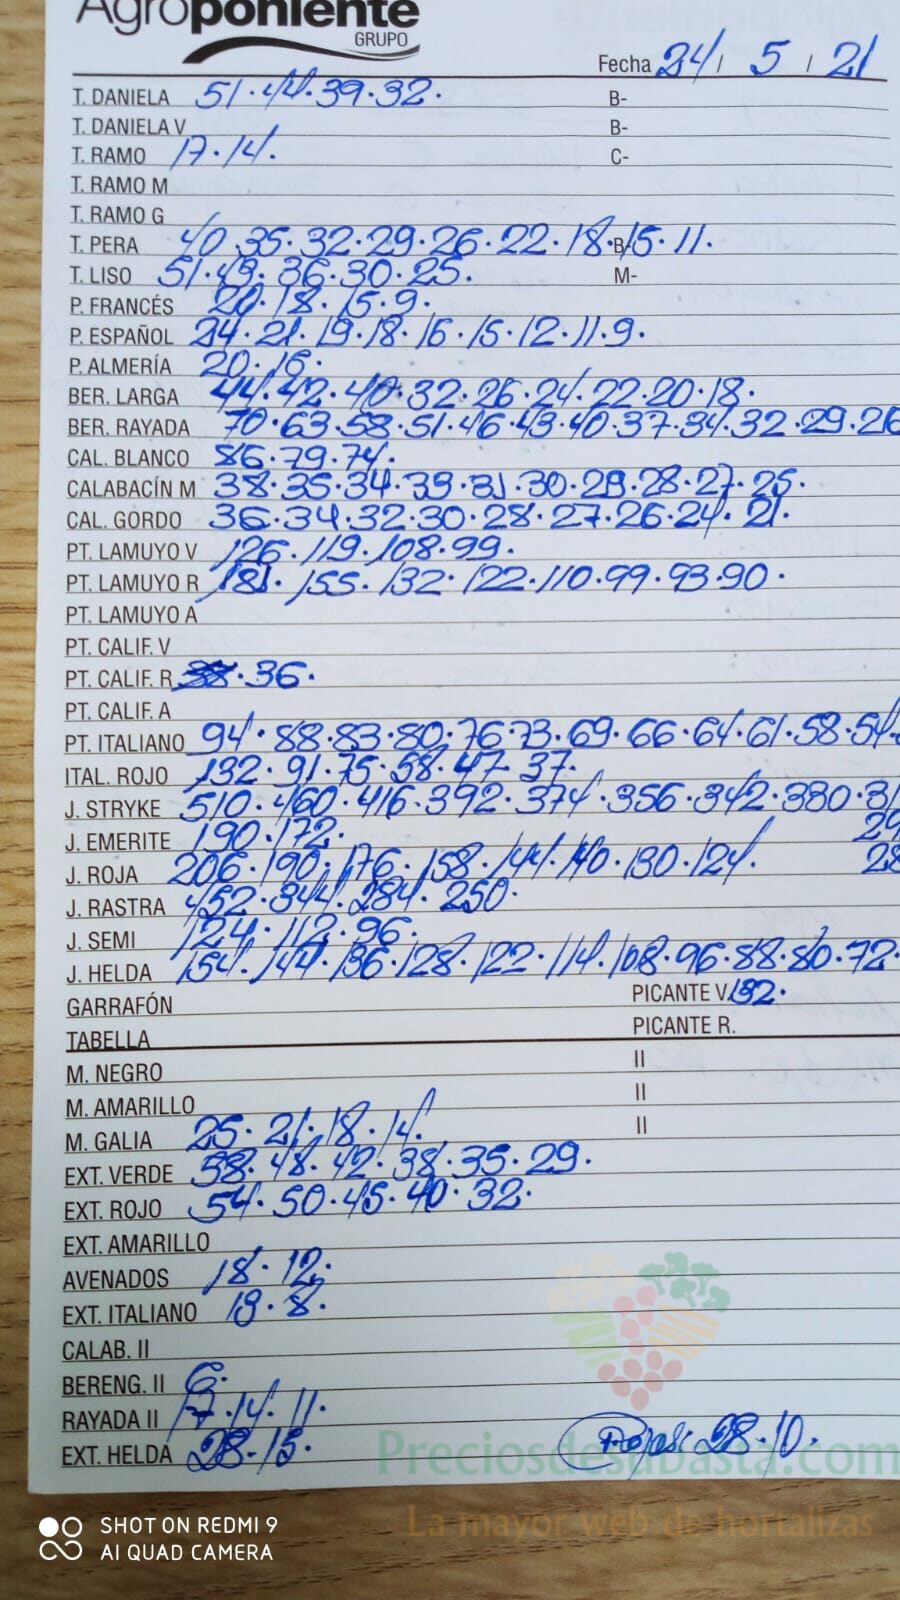 Agroponiente
GRUPO
Fecha 24 / 5 / 21
T. DANIELA 51.44.39.32. B-
T. DANIELA V B-
T. RAMO 17.14. C-
T. RAMO M
T. RAMO G
T. PERA 40.35.32.29.26.22.18.15.11. B-
T. LISO 51.43.36.30.25. M-
P. FRANCÉS 20.18.15.9.
P. ESPAÑOL 24.21.19.18.16.15.12.11.9.
P. ALMERÍA 20.16.
BER. LARGA 44.42.40.32.26.24.22.20.18.
BER. RAYADA 70.63.58.51.46.43.40.37.34.32.29.26
CAL. BLANCO 86.79.74.
CALABACÍN M 38.35.34.33.31.30.29.28.27.25.
CAL. GORDO 36.34.32.30.28.27.26.24.21.
PT. LAMUYO V 126.119.108.99.
PT. LAMUYO R 181.155.132.122.110.99.93.90.
PT. LAMUYO A
PT. CALIF. V
PT. CALIF. R 36.
PT. CALIF. A
PT. ITALIANO 94.88.83.80.76.73.69.66.64.61.58.54.
ITAL. ROJO 132.91.75.58.47.37.
J. STRYKE 510.460.416.392.374.356.342.380.31
J. EMERITE 190.172. 29
J. ROJA 206.190.176.158.144.140.130.124. 28
J. RASTRA 452.344.284.250.
J. SEMI 124.112.96.
J. HELDA 154.144.136.128.122.114.108.96.88.80.72.
GARRAFÓN PICANTE V. 132.
TABELLA PICANTE R.
M. NEGRO II
M. AMARILLO II
M. GALIA 25.21.18.14. II
EXT. VERDE 58.48.42.38.35.29.
EXT. ROJO 54.50.45.40.32.
EXT. AMARILLO
AVENADOS 18.12.
EXT. ITALIANO 18.8.
CALAB. II
BERENG. II 6.
RAYADA II 17.14.11.
EXT. HELDA 28.15. 28.10.
Preciosdesubasta.com
La mayor web de hortalizas
SHOT ON REDMI 9
AI QUAD CAMERA